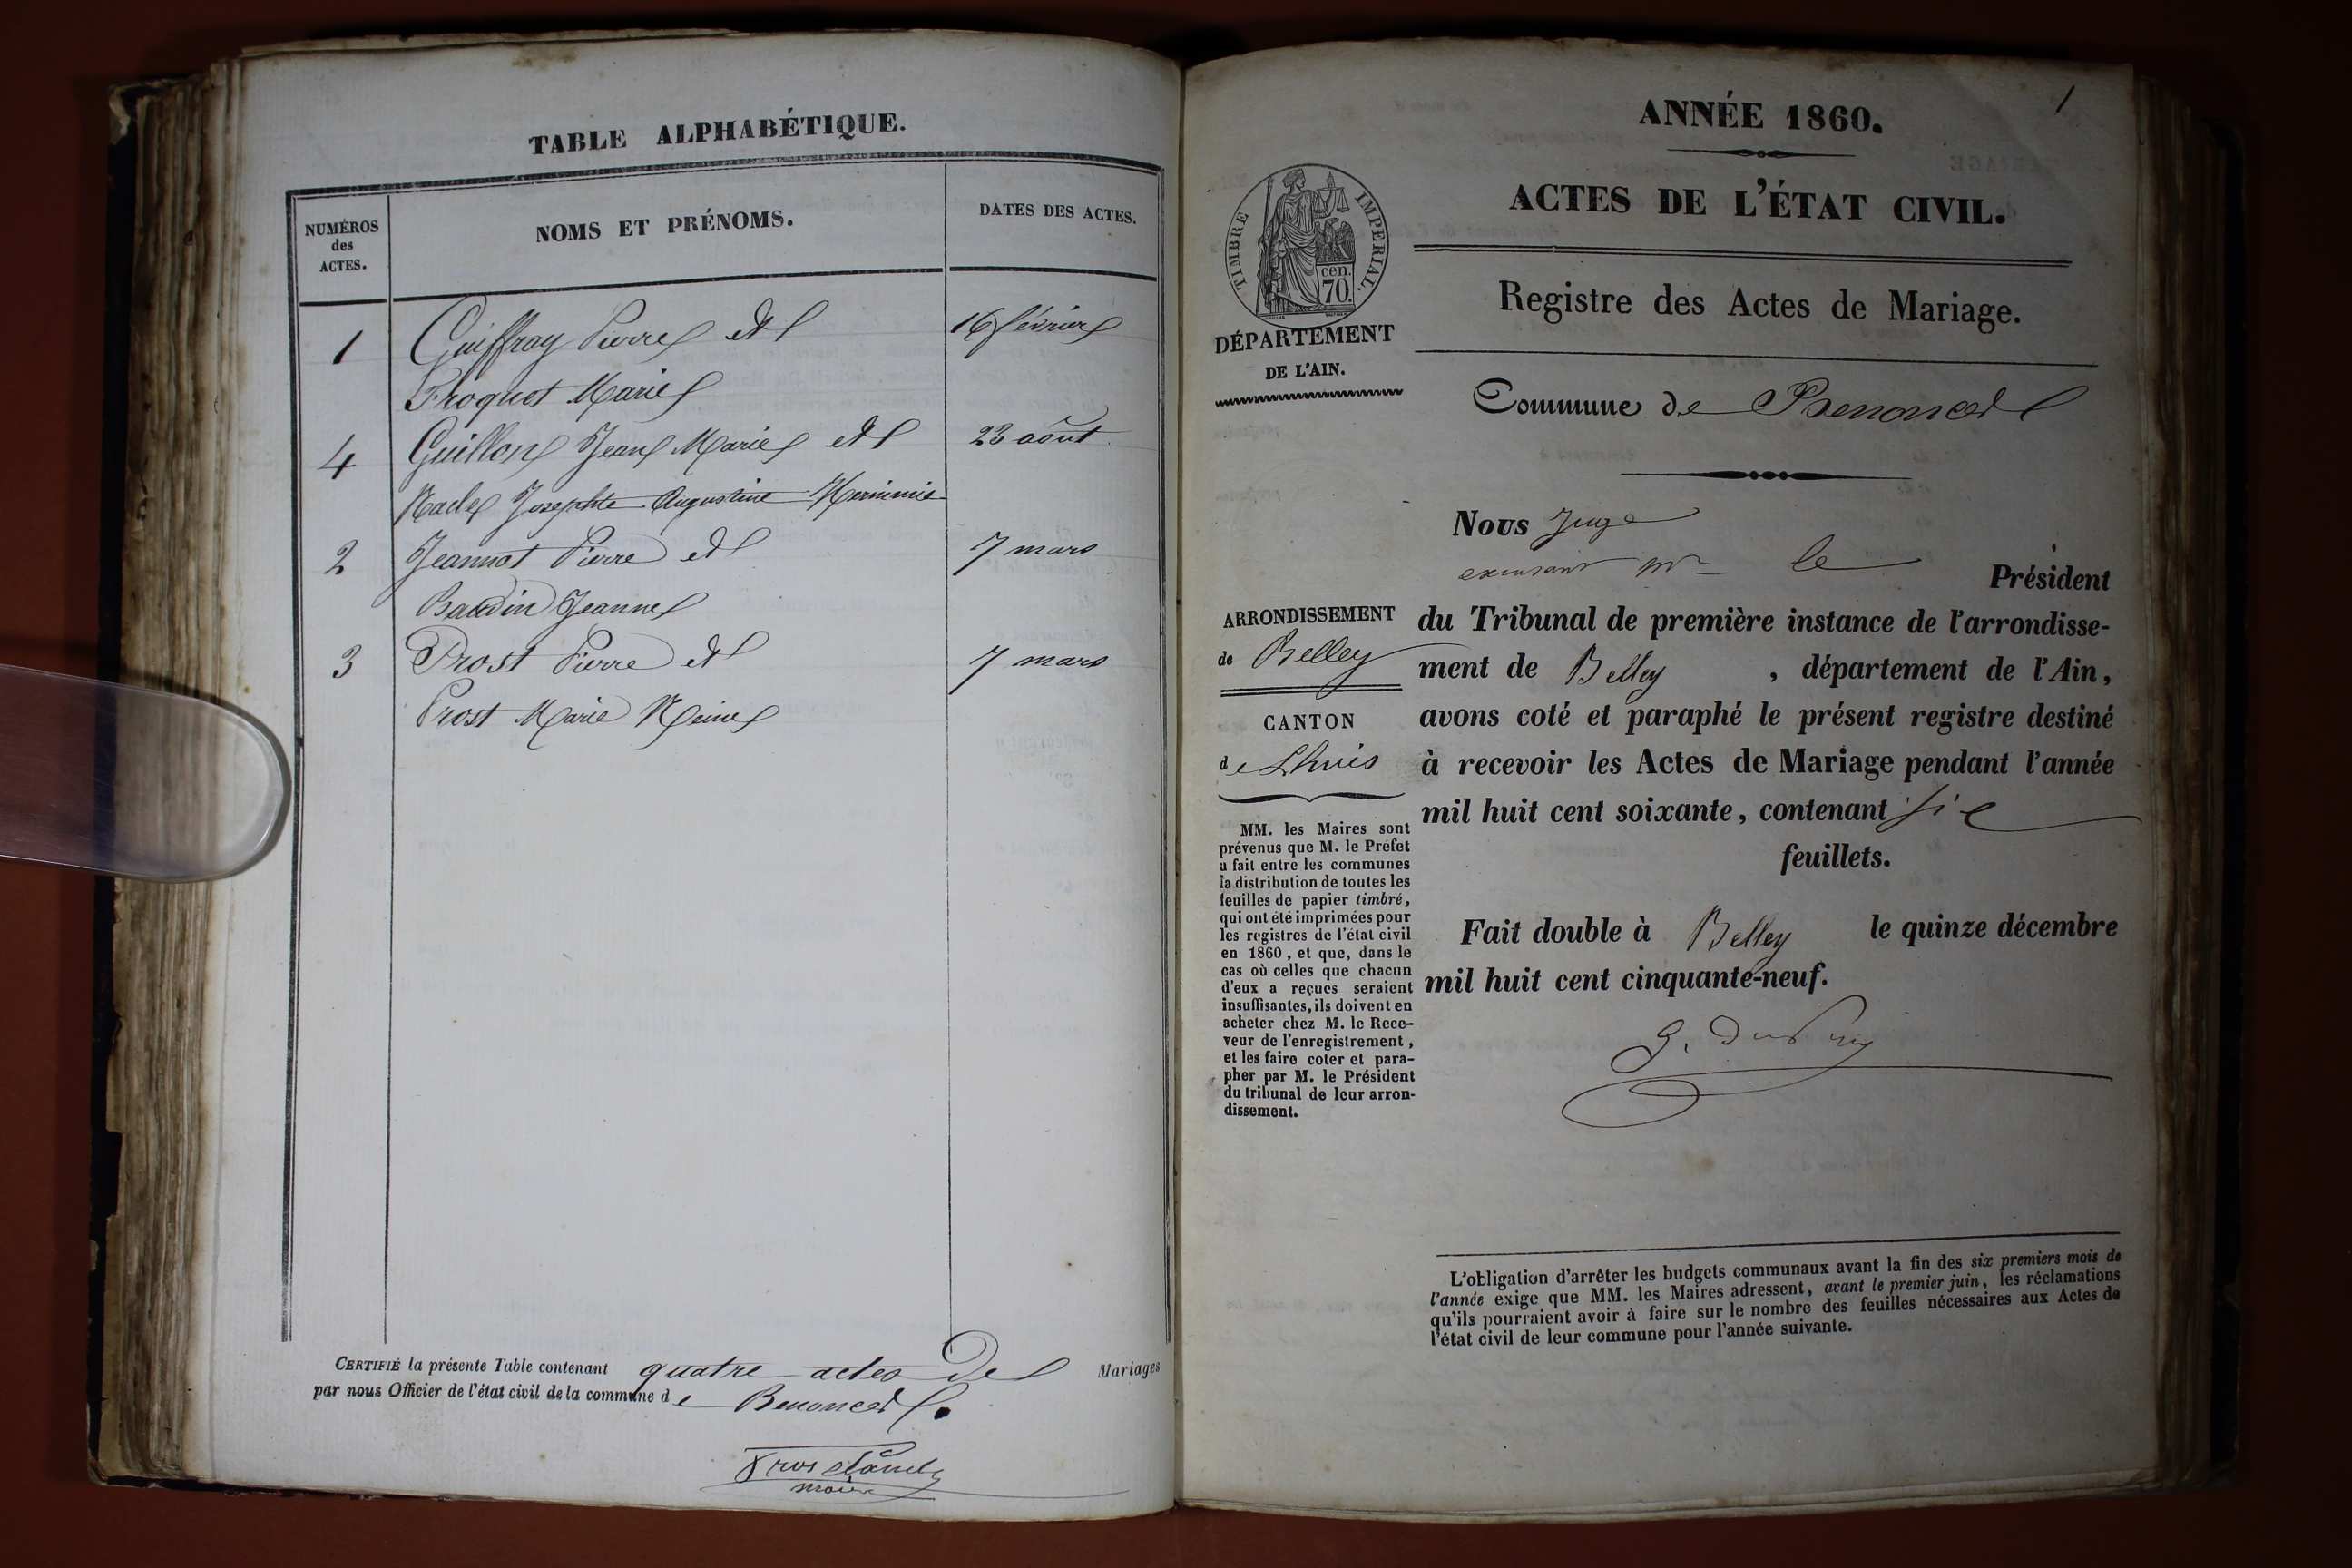 TABLE ALPHABÉTIQUE.
NUMÉROS
des
ACTES.
NOMS ET PRÉNOMS.
DATES DES ACTES.
1 Guiffray Pierre et 16 février
Froquet Marie
4 Guillon Jean Marie et 23 août
Nacle Josephte Augustine Herminie
2 Jeannot Pierre et 7 mars
Baudin Jeanne
3 Prost Pierre et 7 mars
Prost Marie Reine
CERTIFIÉ la présente Table contenant quatre actes de Mariages
par nous Officier de l'état civil de la commune de Benonces.
maire
1
ANNÉE 1860.
ACTES DE L'ÉTAT CIVIL.
Registre des Actes de Mariage.
TIMBRE IMPERIAL.
cen.
70.
DÉPARTEMENT
DE L'AIN.
Commune de Benonces
Nous Juge
le Président
du Tribunal de première instance de l'arrondisse-
ment de Belley, département de l'Ain,
avons coté et paraphé le présent registre destiné
à recevoir les Actes de Mariage pendant l'année
mil huit cent soixante, contenant six
feuillets.
Fait double à Belley le quinze décembre
mil huit cent cinquante-neuf.
ARRONDISSEMENT
de Belley
CANTON
de Lhuis
MM. les Maires sont
prévenus que M. le Préfet
a fait entre les communes
la distribution de toutes les
feuilles de papier timbré,
qui ont été imprimées pour
les registres de l'état civil
en 1860, et que, dans le
cas où celles que chacun
d'eux a reçues seraient
insuffisantes, ils doivent en
acheter chez M. le Rece-
veur de l'enregistrement,
et les faire coter et para-
pher par M. le Président
du tribunal de leur arron-
dissement.
L'obligation d'arrêter les budgets communaux avant la fin des six premiers mois de
l'année exige que MM. les Maires adressent, avant le premier juin, les réclamations
qu'ils pourraient avoir à faire sur le nombre des feuilles nécessaires aux Actes de
l'état civil de leur commune pour l'année suivante.